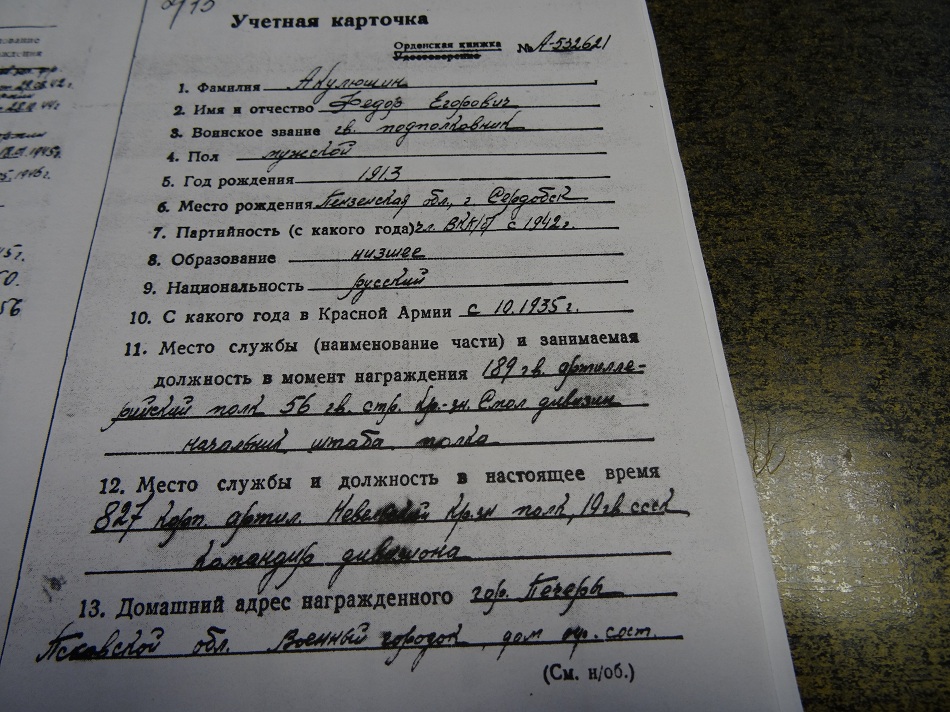 Учетная карточка
Орденская книжка
Удостоверение
№ А-532621
1. Фамилия Акулюшин
2. Имя и отчество Федор Егорович
3. Воинское звание гв. подполковник
4. Пол мужской
5. Год рождения 1913
6. Место рождения Пензенская обл., г. Сердобск
7. Партийность (с какого года) чл. ВКП/б с 1942г.
8. Образование низшее
9. Национальность русский
10. С какого года в Красной Армии с 10.1935г.
11. Место службы (наименование части) и занимаемая
должность в момент награждения 189 гв. артилле-
рийский полк 56 гв. стр. Кр-зн. Смол дивизии
начальник штаба полка
12. Место службы и должность в настоящее время
827 корп. артил. Невельский Кр.зн полк, 19 гв сск
Командир дивизиона
13. Домашний адрес награжденного гор. Печеры
Псковской обл. Военный городок, дом сост.
(См. н/об.)